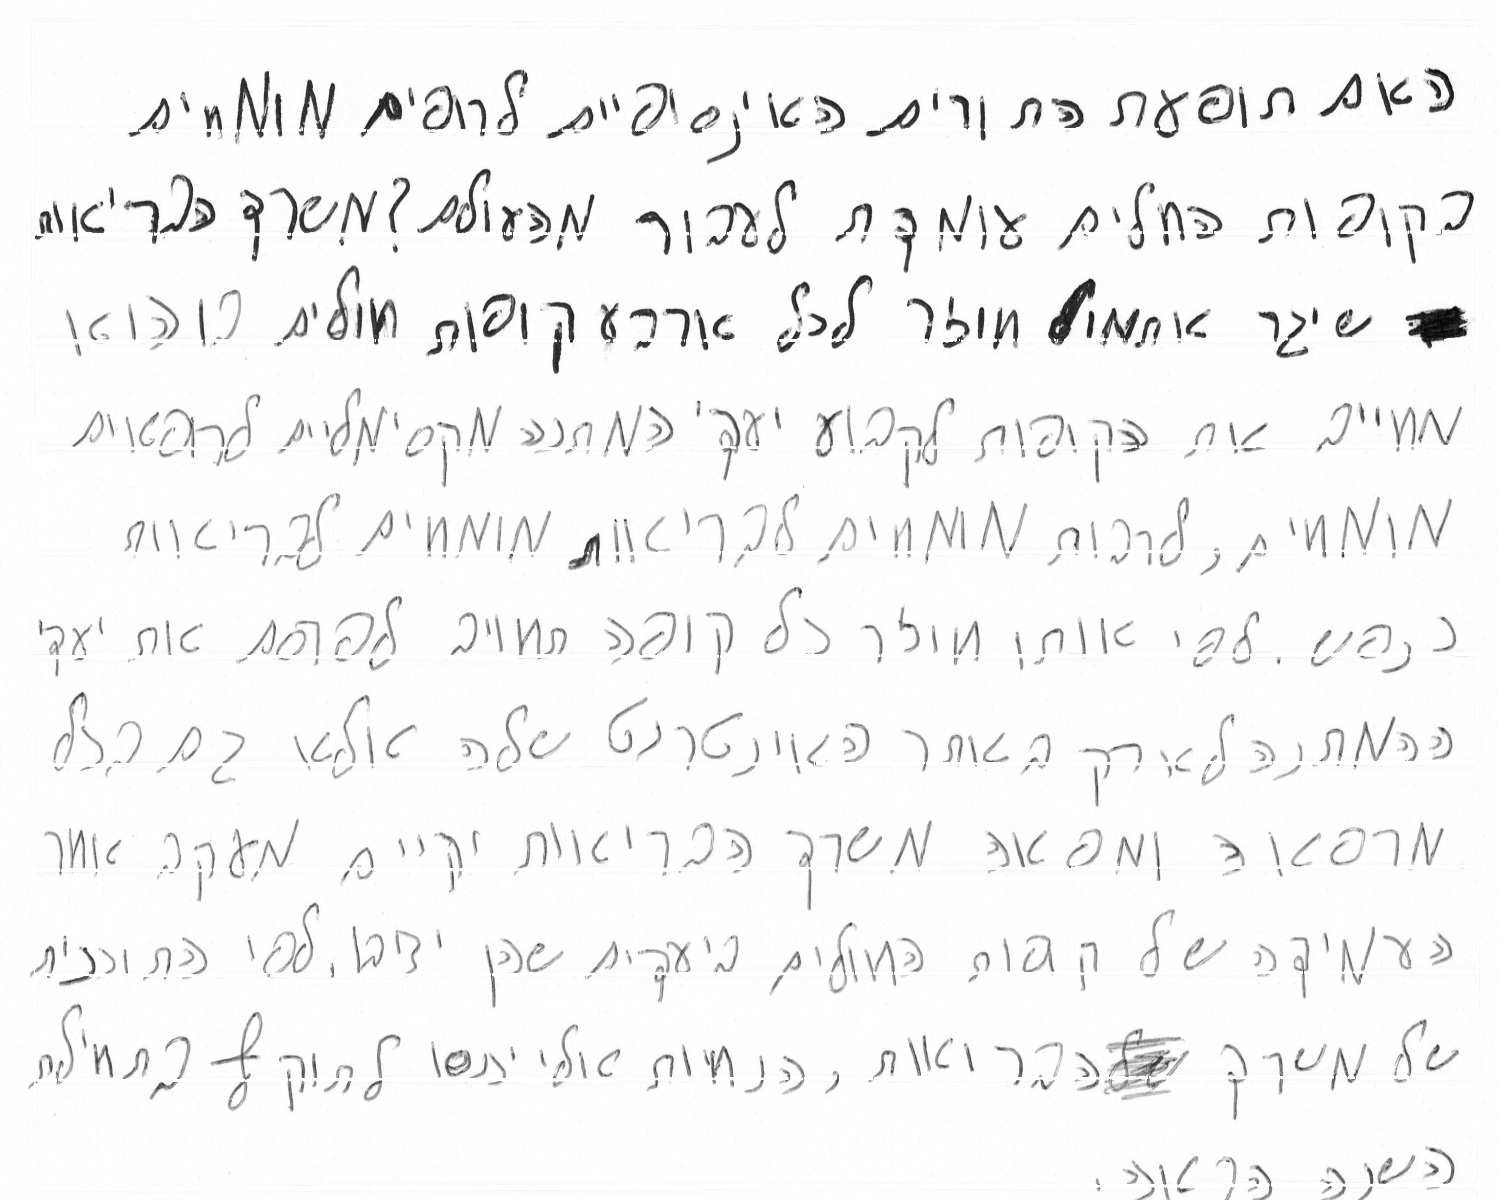 האם תופעת התורים האינסופיים לרופים מומחים
בקופות החלים עומדת לעבור מהעולם? משרד הבריאות
שיגר אתמול חוזר לכל ארבע קופות חולים בו הואו
מחייב את הקופות לקבוע יעדי המתנה מקסימליים לרופאוים
מומחים, לרבות מומחים לבריאוות מומחים לבריאוות
כנפש. לפי אותו חוזר כל קופה תחויב לפרסם את יעדי
ההמתנה לארק באתר האוינטרנט שלה אולא גם בכל
מרפאוה ומפאה משרד הבריאוות יקיים מעקב אחר
העמידה של קופות החולים ביעדים שהן יציבו. לפי התוכנית
של משרד הברואות, הנחיות אולי יכנסו לתוקף בתחילת
השנה הבאוה.